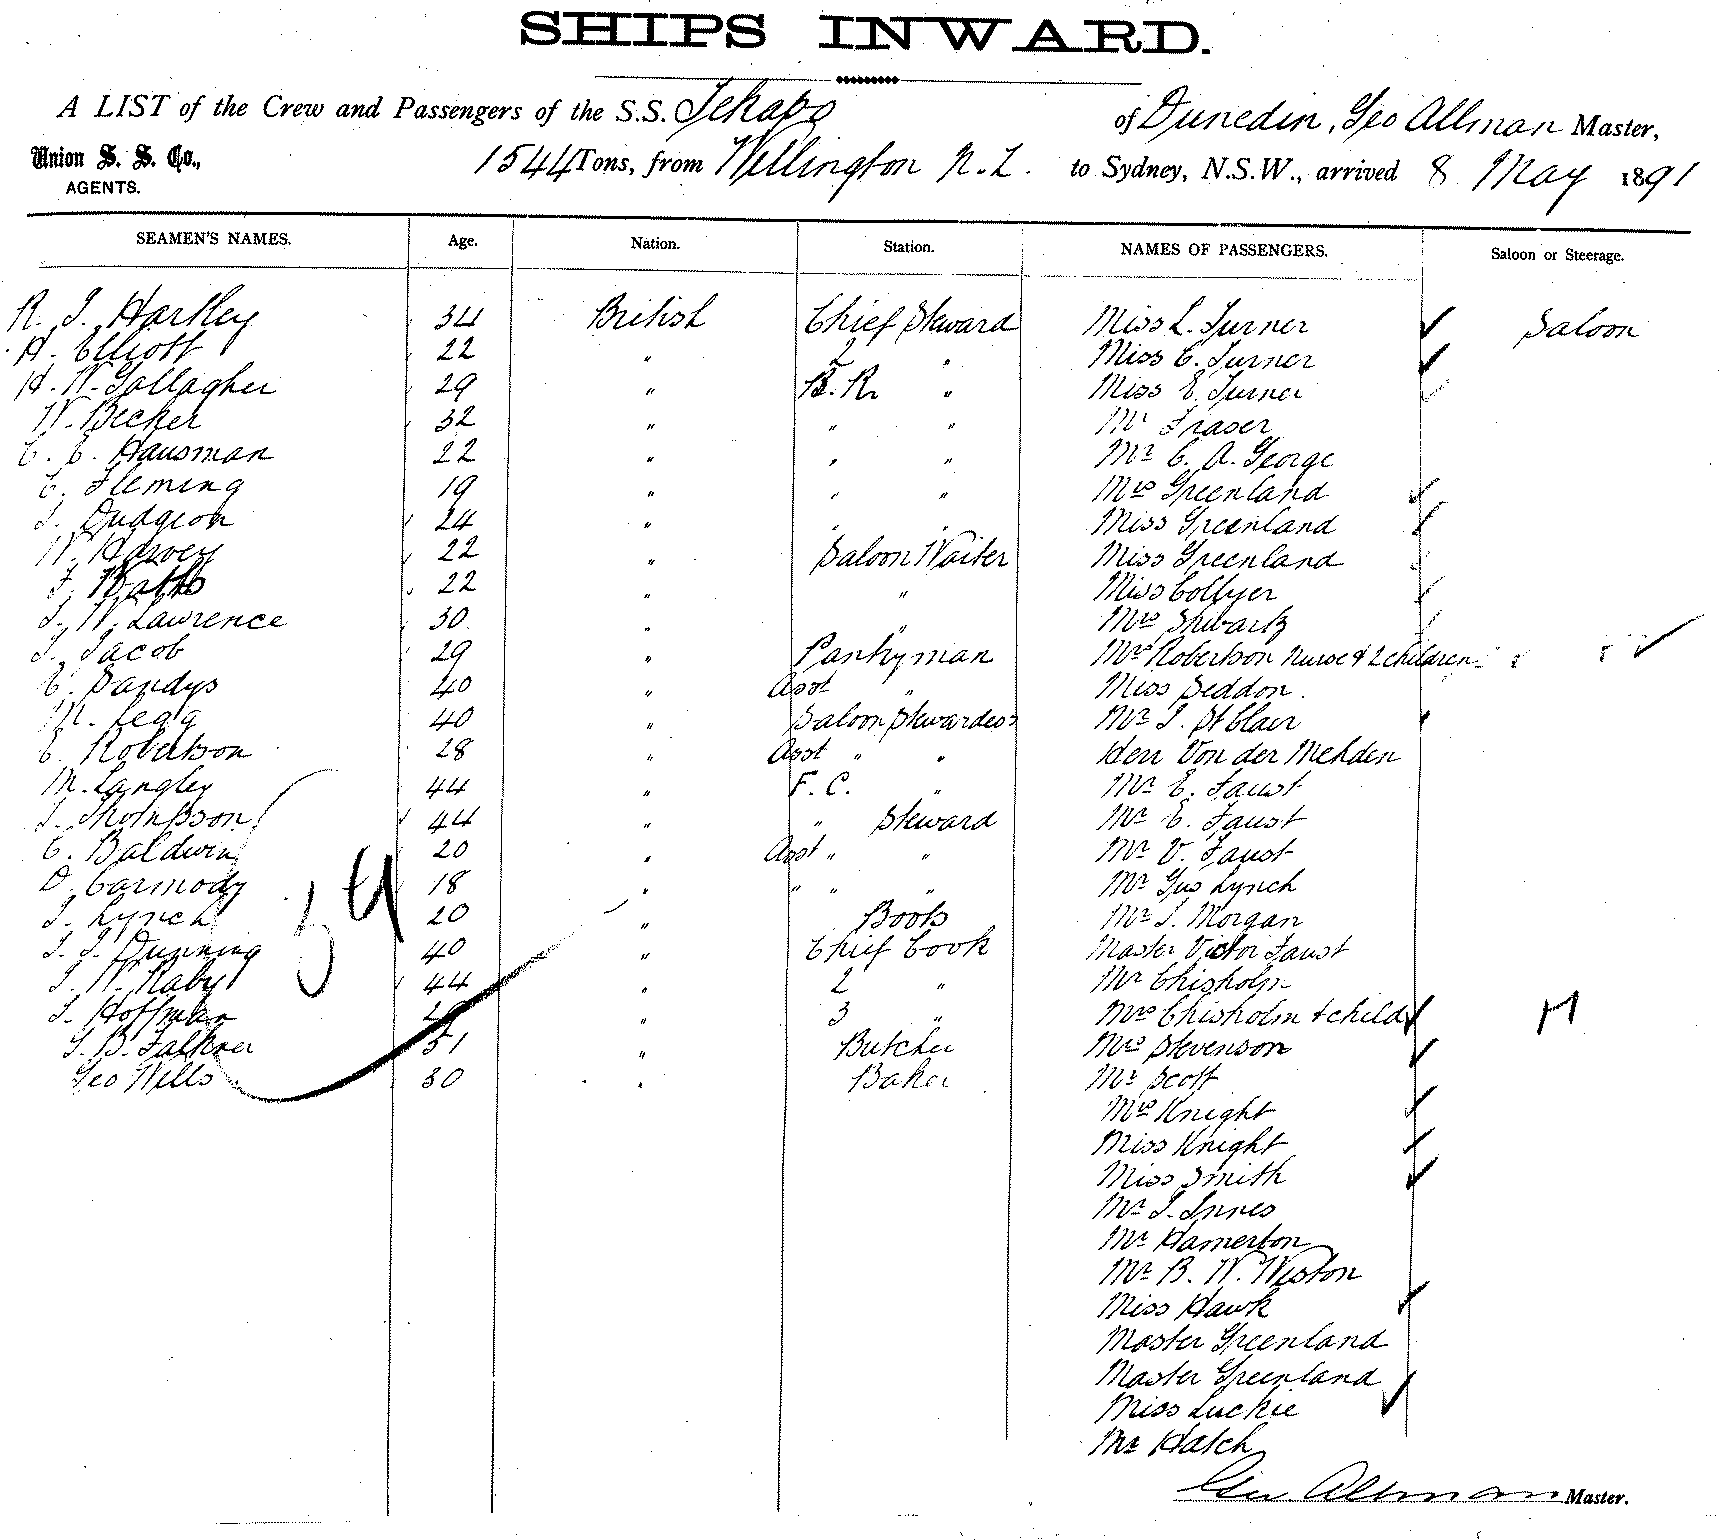 SHIPS INWARD.
A LIST of the Crew and Passengers of the S.S. Tekapo of Dunedin, Geo Allman Master,
Union S. S. Co.,
AGENTS.
1544 Tons, from Wellington N.Z. to Sydney, N.S.W., arrived 8 May 1891
SEAMEN'S NAMES. Age. Nation. Station. NAMES OF PASSENGERS. Saloon or Steerage.
R. J. Hartley 34 British Chief Steward Miss L. Turner Saloon
H. Elliott 22 " 2 " Miss C. Turner
H. W. Gallagher 29 " B. R. " Miss E. Turner
W. Becker 32 " " " Mr Fraser
C. E. Hausman 22 " " " Mr C. A. George
C. Fleming 19 " " " Mrs Greenland
J. Dudgeon 24 " " " Miss Greenland
W. Harvey 22 " Saloon Waiter Miss Greenland
F. Watts 22 " " Miss Collyer
J. W. Lawrence 30 " " Mrs Shwartz
J. Jacob 29 " Pantryman Mrs Robertson Nurse & 2 children
E. Sandys 40 " Asst " Miss Seddon
M. Legg 40 " Saloon Stewardess Mr J. St Clair
E. Robertson 28 " Asst " " Herr Von der Mehden
M. Langley 44 " F. C. " Mr E. Faust
J. Thompson 44 " " Steward Mr E. Faust
C. Baldwin 20 " Asst " " Mr V. Faust
D. Carmody 18 " " " " Mr Gus Lynch
J. Lynch 20 " Boots Mr J. Morgan
J. J. Dunning 40 " Chief Cook Master Victor Faust
J. W. Raby 44 " 2 " Mr Chisholm
J. Hoffman " 3 " Mrs Chisholm & child
J. B. Falkner 51 " Butcher Mrs Stevenson
Geo Wells 30 " Baker Mr Scott
Mrs Knight
Miss Knight
Miss Smith
Mr J. Innes
Mr Hamerton
Mr B. W. Weston
Miss Hawk
Master Greenland
Master Greenland
Miss Luckie
Mr Hatch
Geo Allman Master.